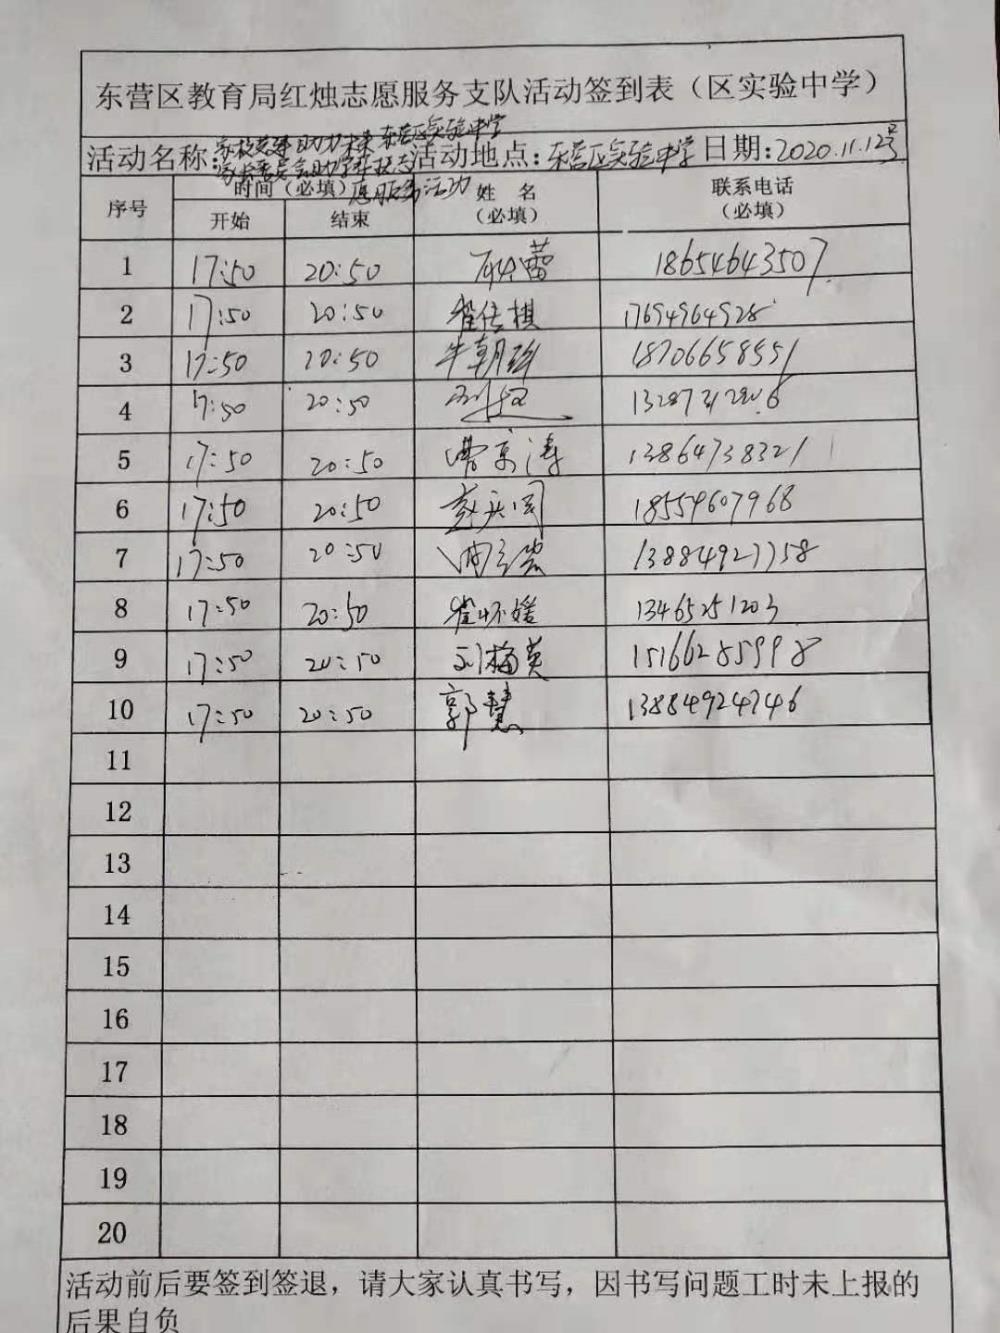 东营区教育局红烛志愿服务支队活动签到表（区实验中学）
活动名称: 家校共建 助力未来 东营区实验中学 活动地点: 东营区实验中学 日期: 2020.11.12号
家长委员会助学在校志愿服务活动
序号 时间（必填） 姓 名（必填） 联系电话（必填）
开始 结束
1 17:50 20:50 蕾 18654643507
2 17:50 20:50 17694964928
3 17:50 20:50 牛朝 18706658551
4 17:50 20:50 刘超
5 17:50 20:50 曹京涛 13864738321
6 17:50 20:50 18554607968
7 17:50 20:50 13884927758
8 17:50 20:50 崔怀媛 13465251203
9 17:50 20:50 刘梅英 15166285998
10 17:50 20:50 郭慧 13884924746
11
12
13
14
15
16
17
18
19
20
活动前后要签到签退，请大家认真书写，因书写问题工时未上报的
后果自负